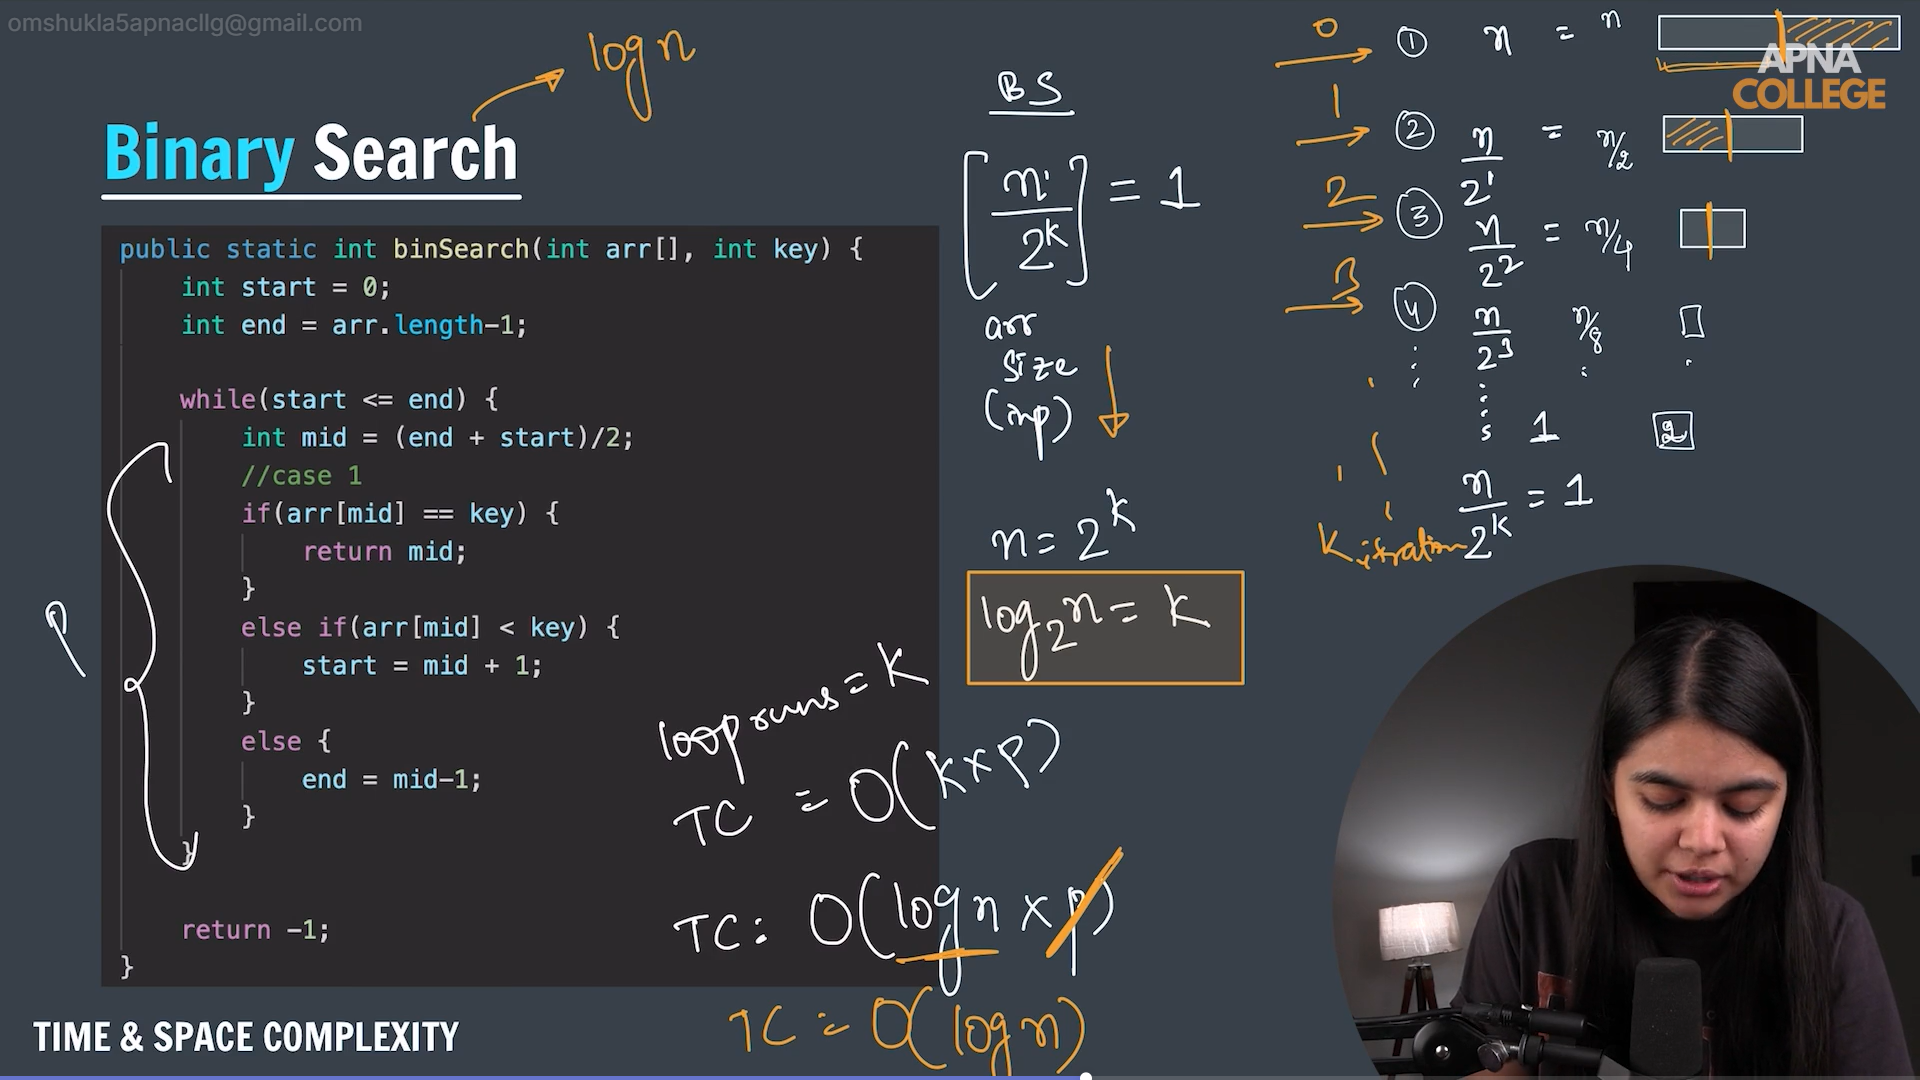 omshukla5apnacllg@gmail.com
log n
Binary Search
public static int binSearch(int arr[], int key) {
int start = 0;
int end = arr.length-1;
while(start <= end) {
int mid = (end + start)/2;
//case 1
if(arr[mid] == key) {
return mid;
}
else if(arr[mid] < key) {
start = mid + 1;
}
else {
end = mid-1;
}
}
return -1;
}
P
loop runs = K
TC = O(K×P)
TC: O(log n × P)
TC = O(log n)
BS
[n/2^K] = 1
arr
size
(inp)
n = 2^K
log₂n = K
0 ① n = n
1 ② n/2¹ = n/2
2 ③ n/2² = n/4
3 ④ n/2³ n/8
1
n/2^K = 1
K itration
APNA
COLLEGE
TIME & SPACE COMPLEXITY